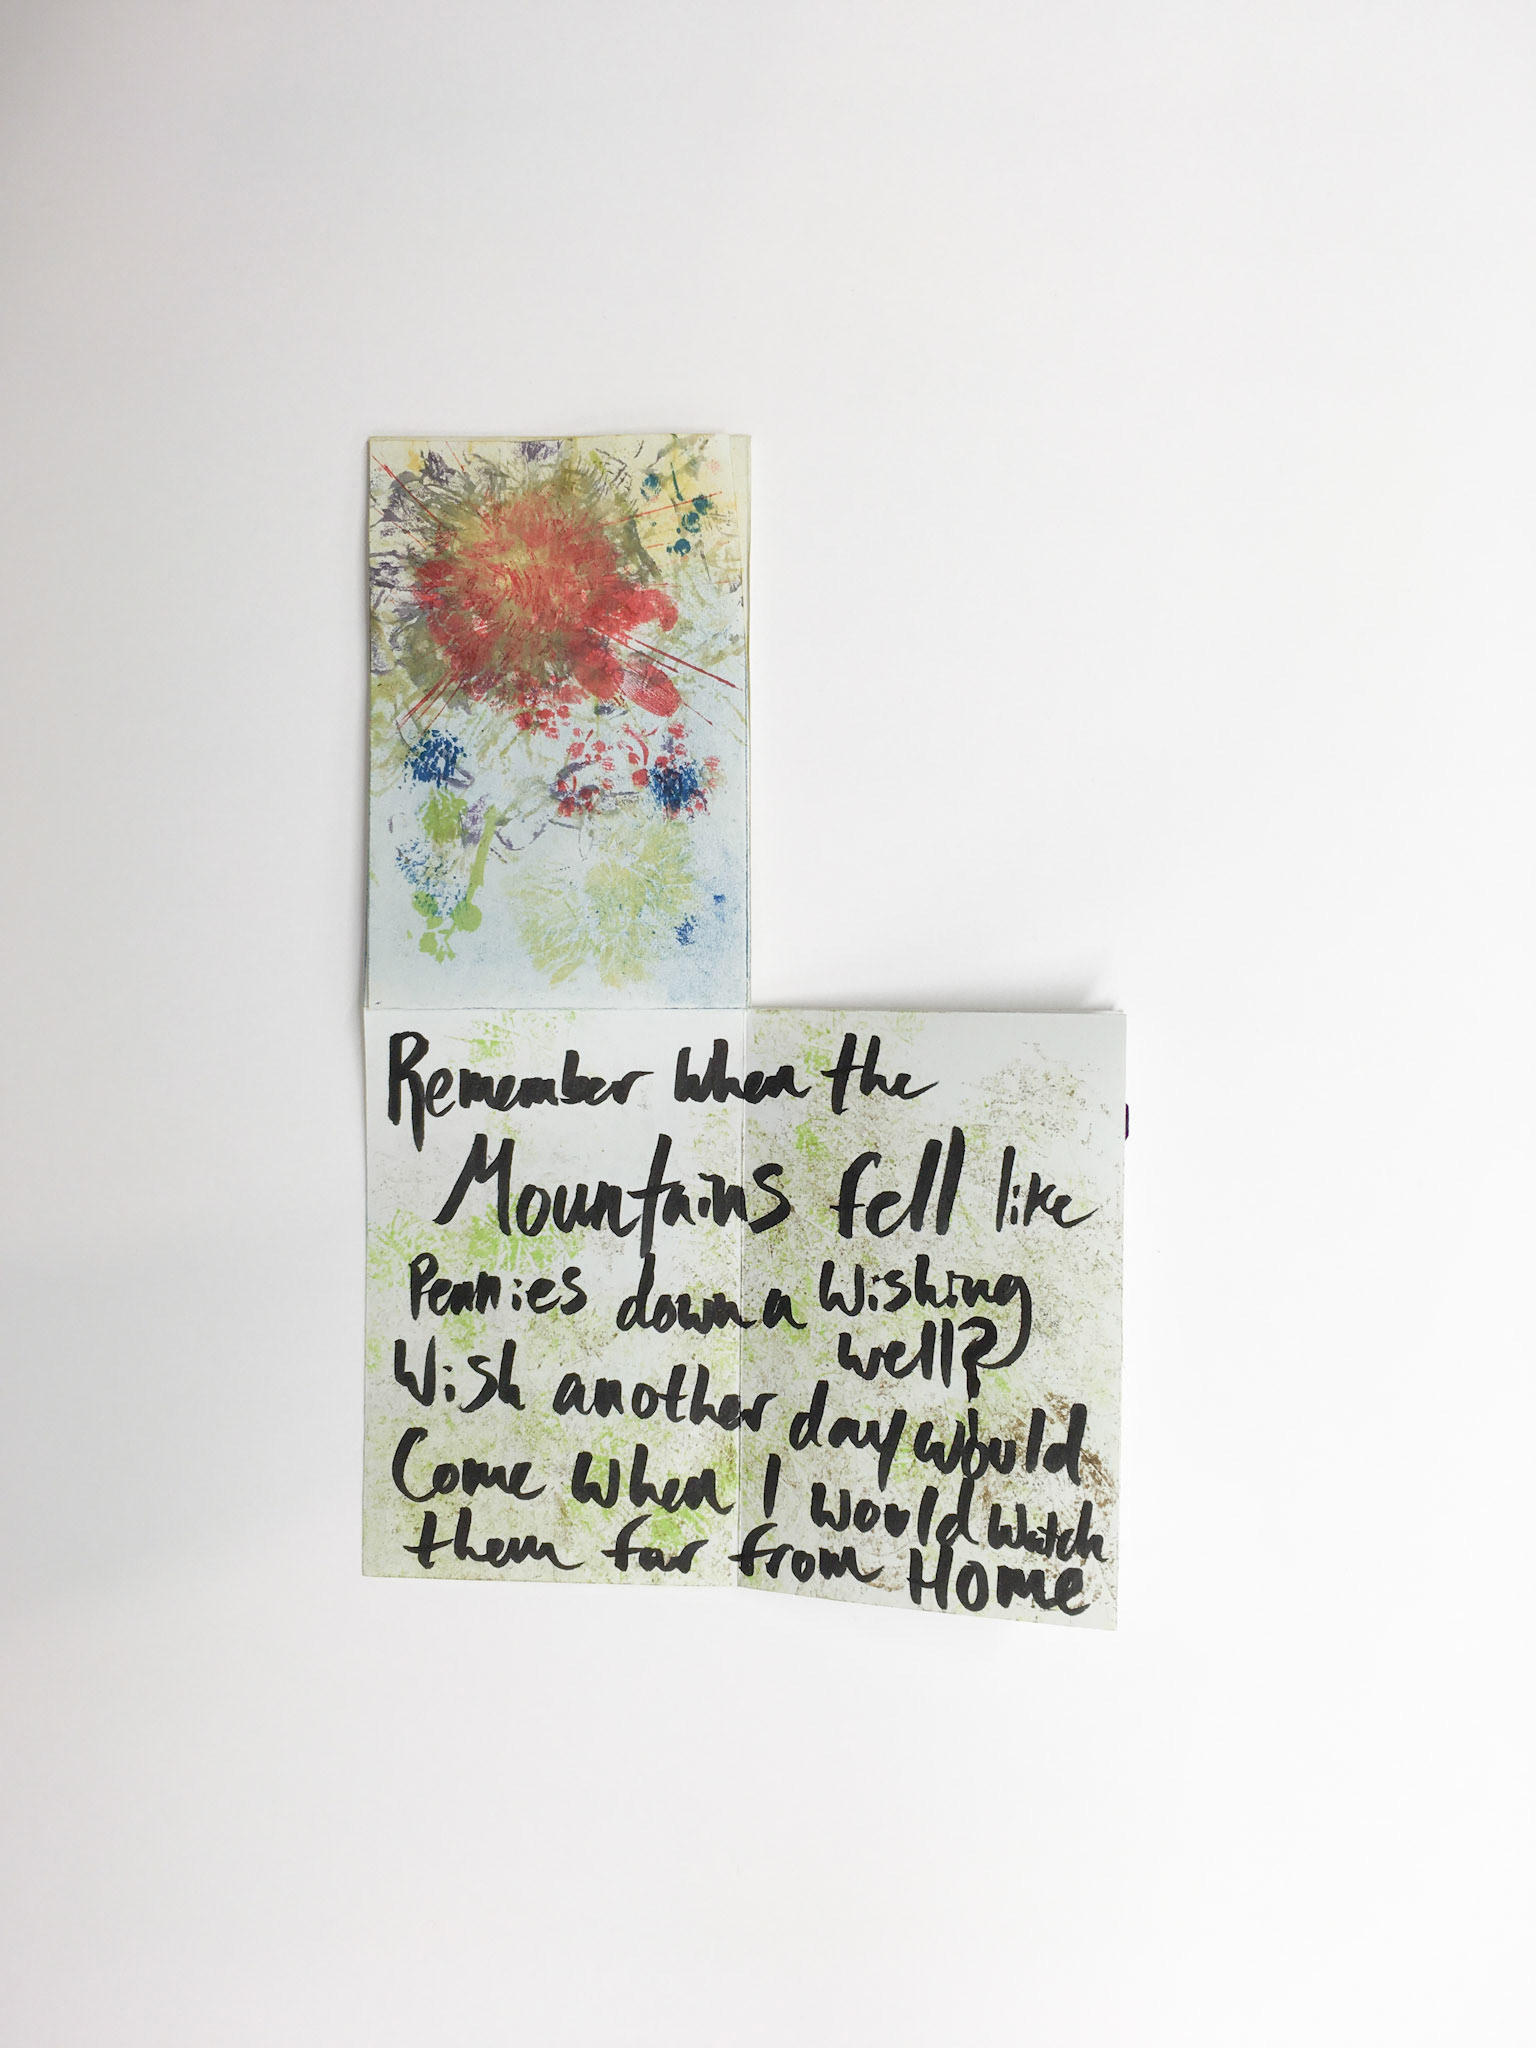 Remember When the
Mountains fell like
Pennies down a Wishing
well?
Wish another day would
Come When I would Watch
them far from Home